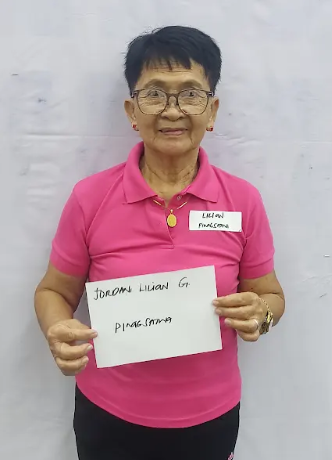 LILIAN
PINAGSAMA
JORDAN LILIAN G.
PINAGSAMA